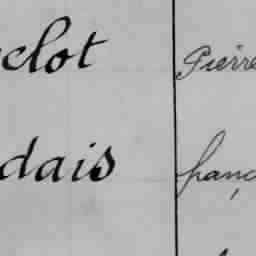 clot Pierre
dais franç